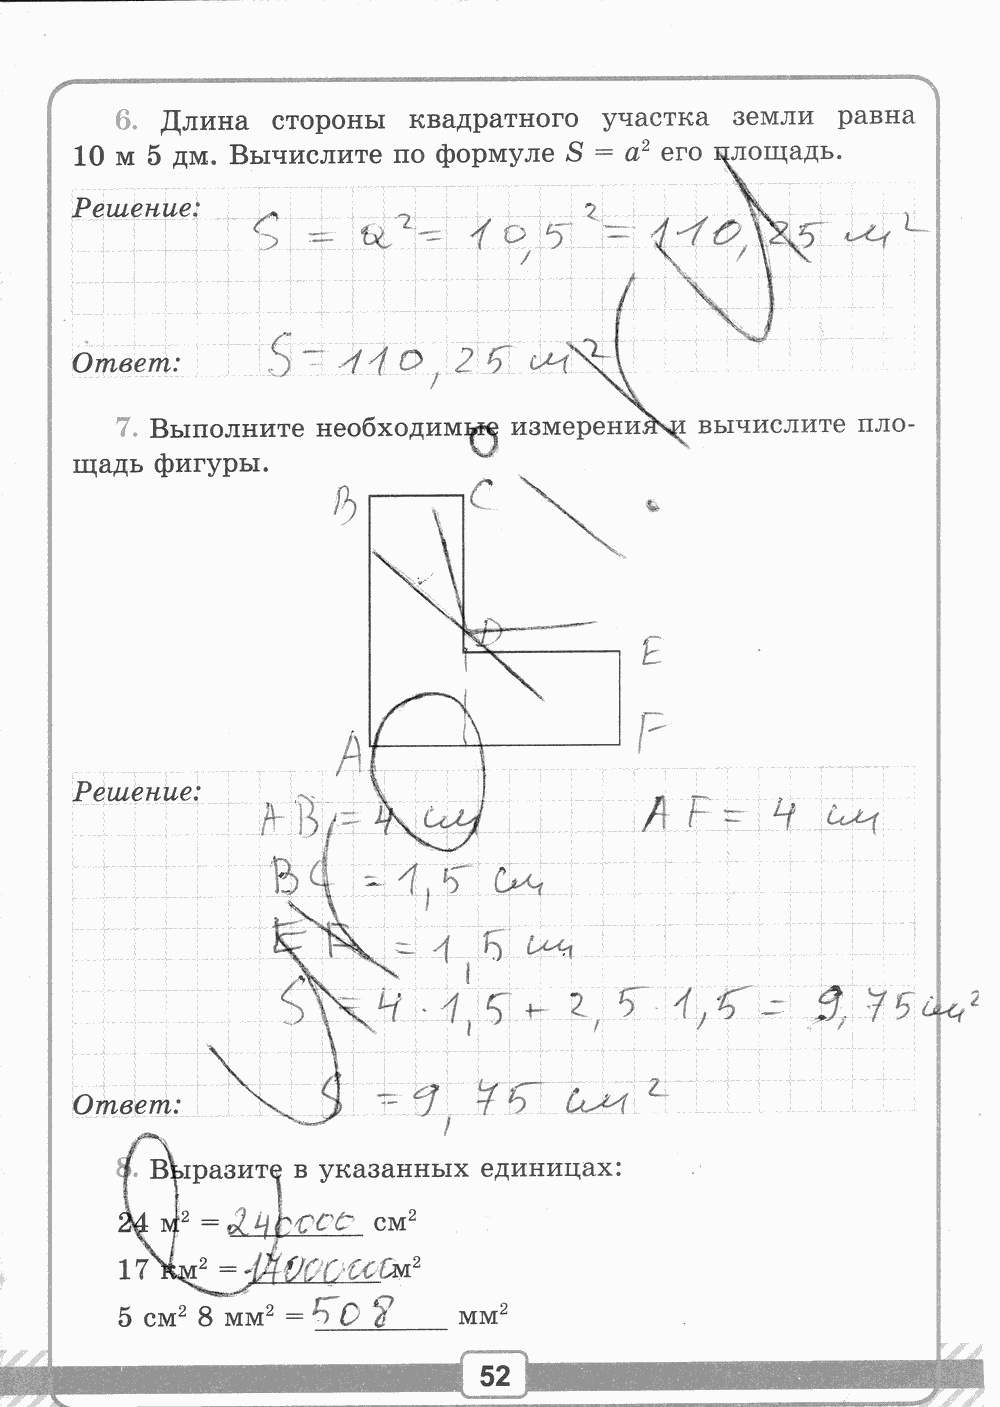 6. Длина стороны квадратного участка земли равна
10 м 5 дм. Вычислите по формуле S = a² его площадь.
Решение:
S = a² = 10,5² = 110,25 м²
Ответ: S = 110,25 м²
7. Выполните необходимые измерения и вычислите пло-
щадь фигуры.
B C
D E
A F
Решение:
AB = 4 см AF = 4 см
BC = 1,5 см
EF = 1,5 см
S = 4 · 1,5 + 2,5 · 1,5 = 9,75 см²
Ответ: S = 9,75 см²
8. Выразите в указанных единицах:
24 м² = 240000 см²
17 км² = 17000000 м²
5 см² 8 мм² = 508 мм²
52